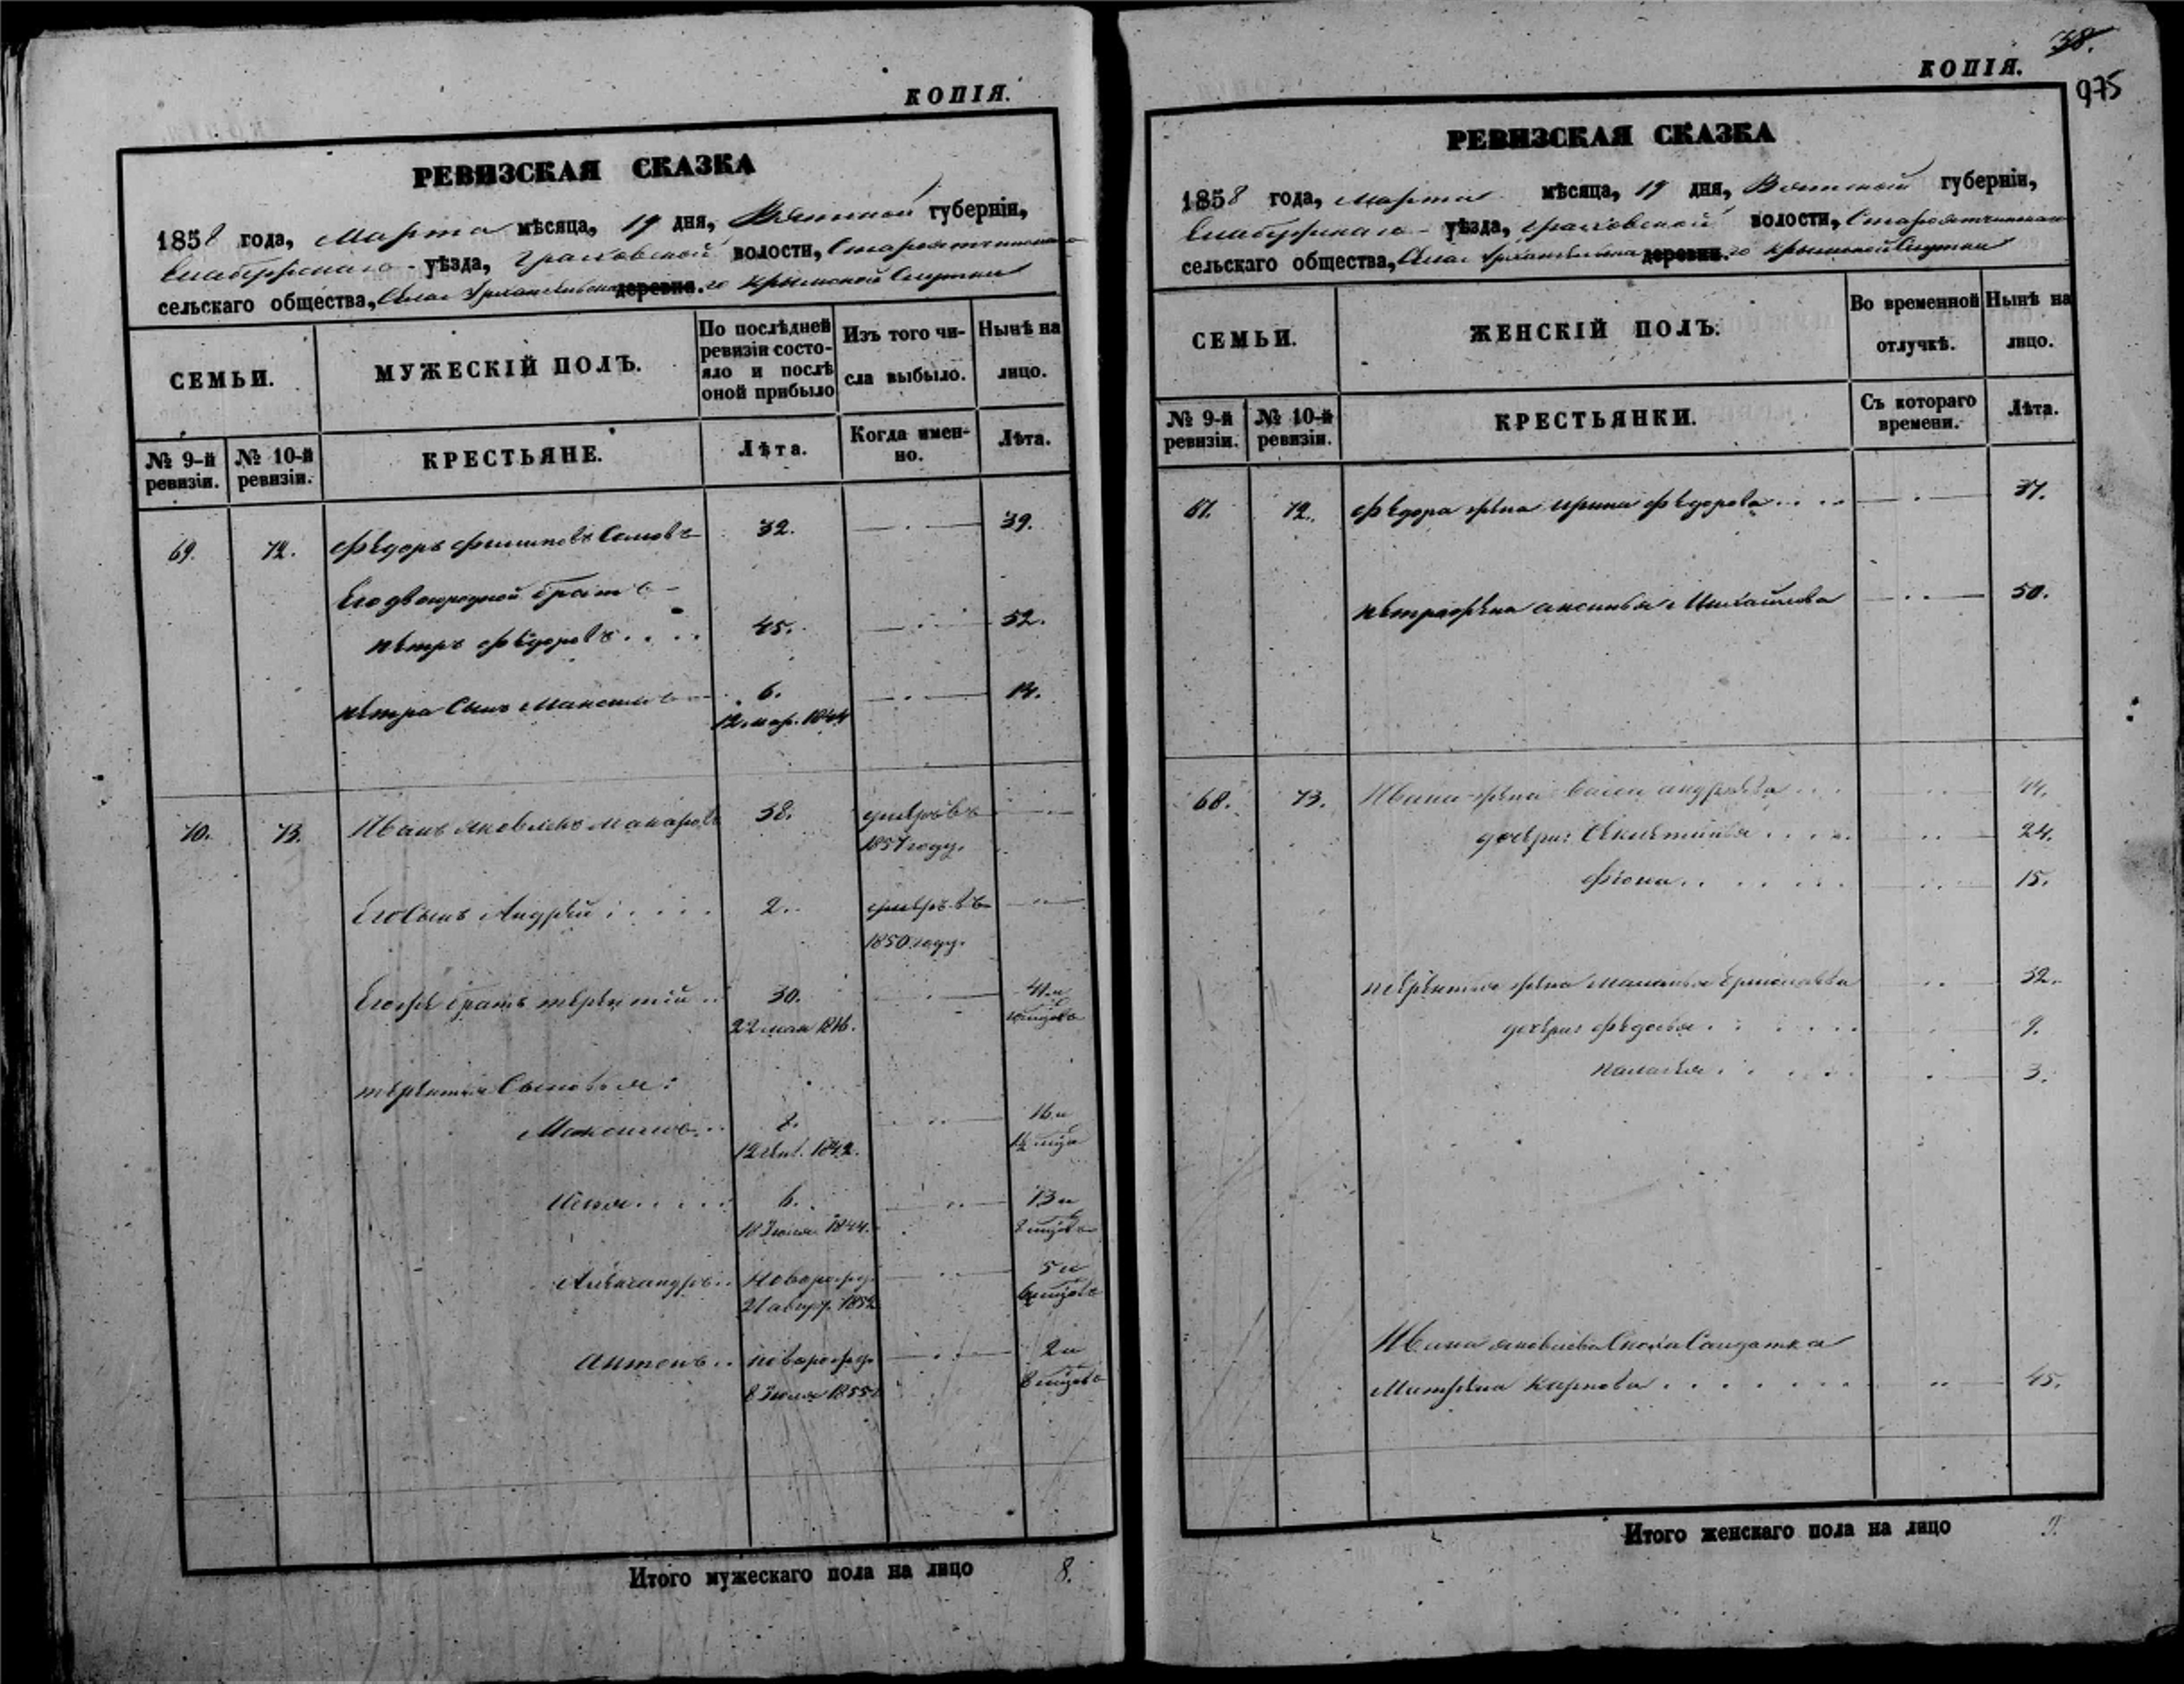 КОПІЯ.
РЕВИЗСКАЯ СКАЗКА
1858 года, Марта мѣсяца, 19 дня, Вятской губерніи,
Елабужскаго уѣзда, Граховской волости,
сельскаго общества, Села Архангельска деревни. Крымской Слутки
СЕМЬИ.
МУЖЕСКІЙ ПОЛЪ.
По послѣдней ревизіи состояло и послѣ оной прибыло
Изъ того числа выбыло.
Нынѣ на лицо.
№ 9-й ревизіи.
№ 10-й ревизіи.
КРЕСТЬЯНЕ.
Лѣта.
Когда именно.
Лѣта.
69. 72. Ѳедоръ Филиповъ 32. 39.
Его двоюродной братъ
Петръ Ѳедоровъ 45. 52.
Петра Сынъ Максимъ 6. 14.
12 мар. 1844
70. 73. Иванъ Яковлевъ Макаровъ 38. умеръ въ
1857 году.
Его Сынъ Андрей 2. умеръ въ
1850 году.
Его же братъ Терентій 30. 41 и
22 мая 1816.
Терентія Сыновья:
Максимъ 16 и
12 сент. 1842.
Илья 6. 13 и
18 Іюля 1844. 8 мцовъ
Александръ Новорожд. 5 и
21 авгу. 1852 6 мцовъ
Антонъ новорожд. 2 и
8 Іюля 1855 8 мцовъ
Итого мужескаго пола на лицо 8.
38.
КОПІЯ.
975
РЕВИЗСКАЯ СКАЗКА
1858 года, Марта мѣсяца, 19 дня, Вятской губерніи,
Елабужскаго уѣзда, Граховской волости,
сельскаго общества, Села Архангельска деревни. Крымской Слутки
СЕМЬИ.
ЖЕНСКІЙ ПОЛЪ.
Во временной отлучкѣ.
Нынѣ на лицо.
№ 9-й ревизіи.
№ 10-й ревизіи.
КРЕСТЬЯНКИ.
Съ котораго времени.
Лѣта.
72. Ѳедора жена Ирина Ѳедорова 37.
Петра жена Аксинья Михайлова 50.
68. 73. Ивана жена Васса Андреева 44.
дочери: 24.
15.
Терентія жена Маланья Ермолаева 32.
дочери: Ѳедосья 9.
Палагея 3.
Ивана Яковлева Сноха Салдатка
Матрена Карпова 45.
Итого женскаго пола на лицо